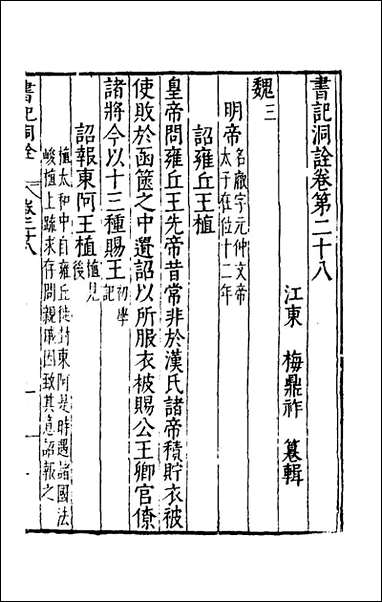 書記洞詮卷第二十八
江東 梅鼎祚 纂輯
魏三
明帝 名叡字元仲文帝太子在位十二年
詔雍丘王植
皇帝問雍丘王先帝昔常非於漢氏諸帝積貯衣被
使敗於函篋之中遺詔以所服衣被賜公王卿官僚
諸將今以十三種賜王 初學記
詔報東阿王植 植見後
植太和中自雍丘徙封東阿是時遇諸國法
峻植上疏求存問親戚因致其意詔報之
書記洞詮 卷二十八 一